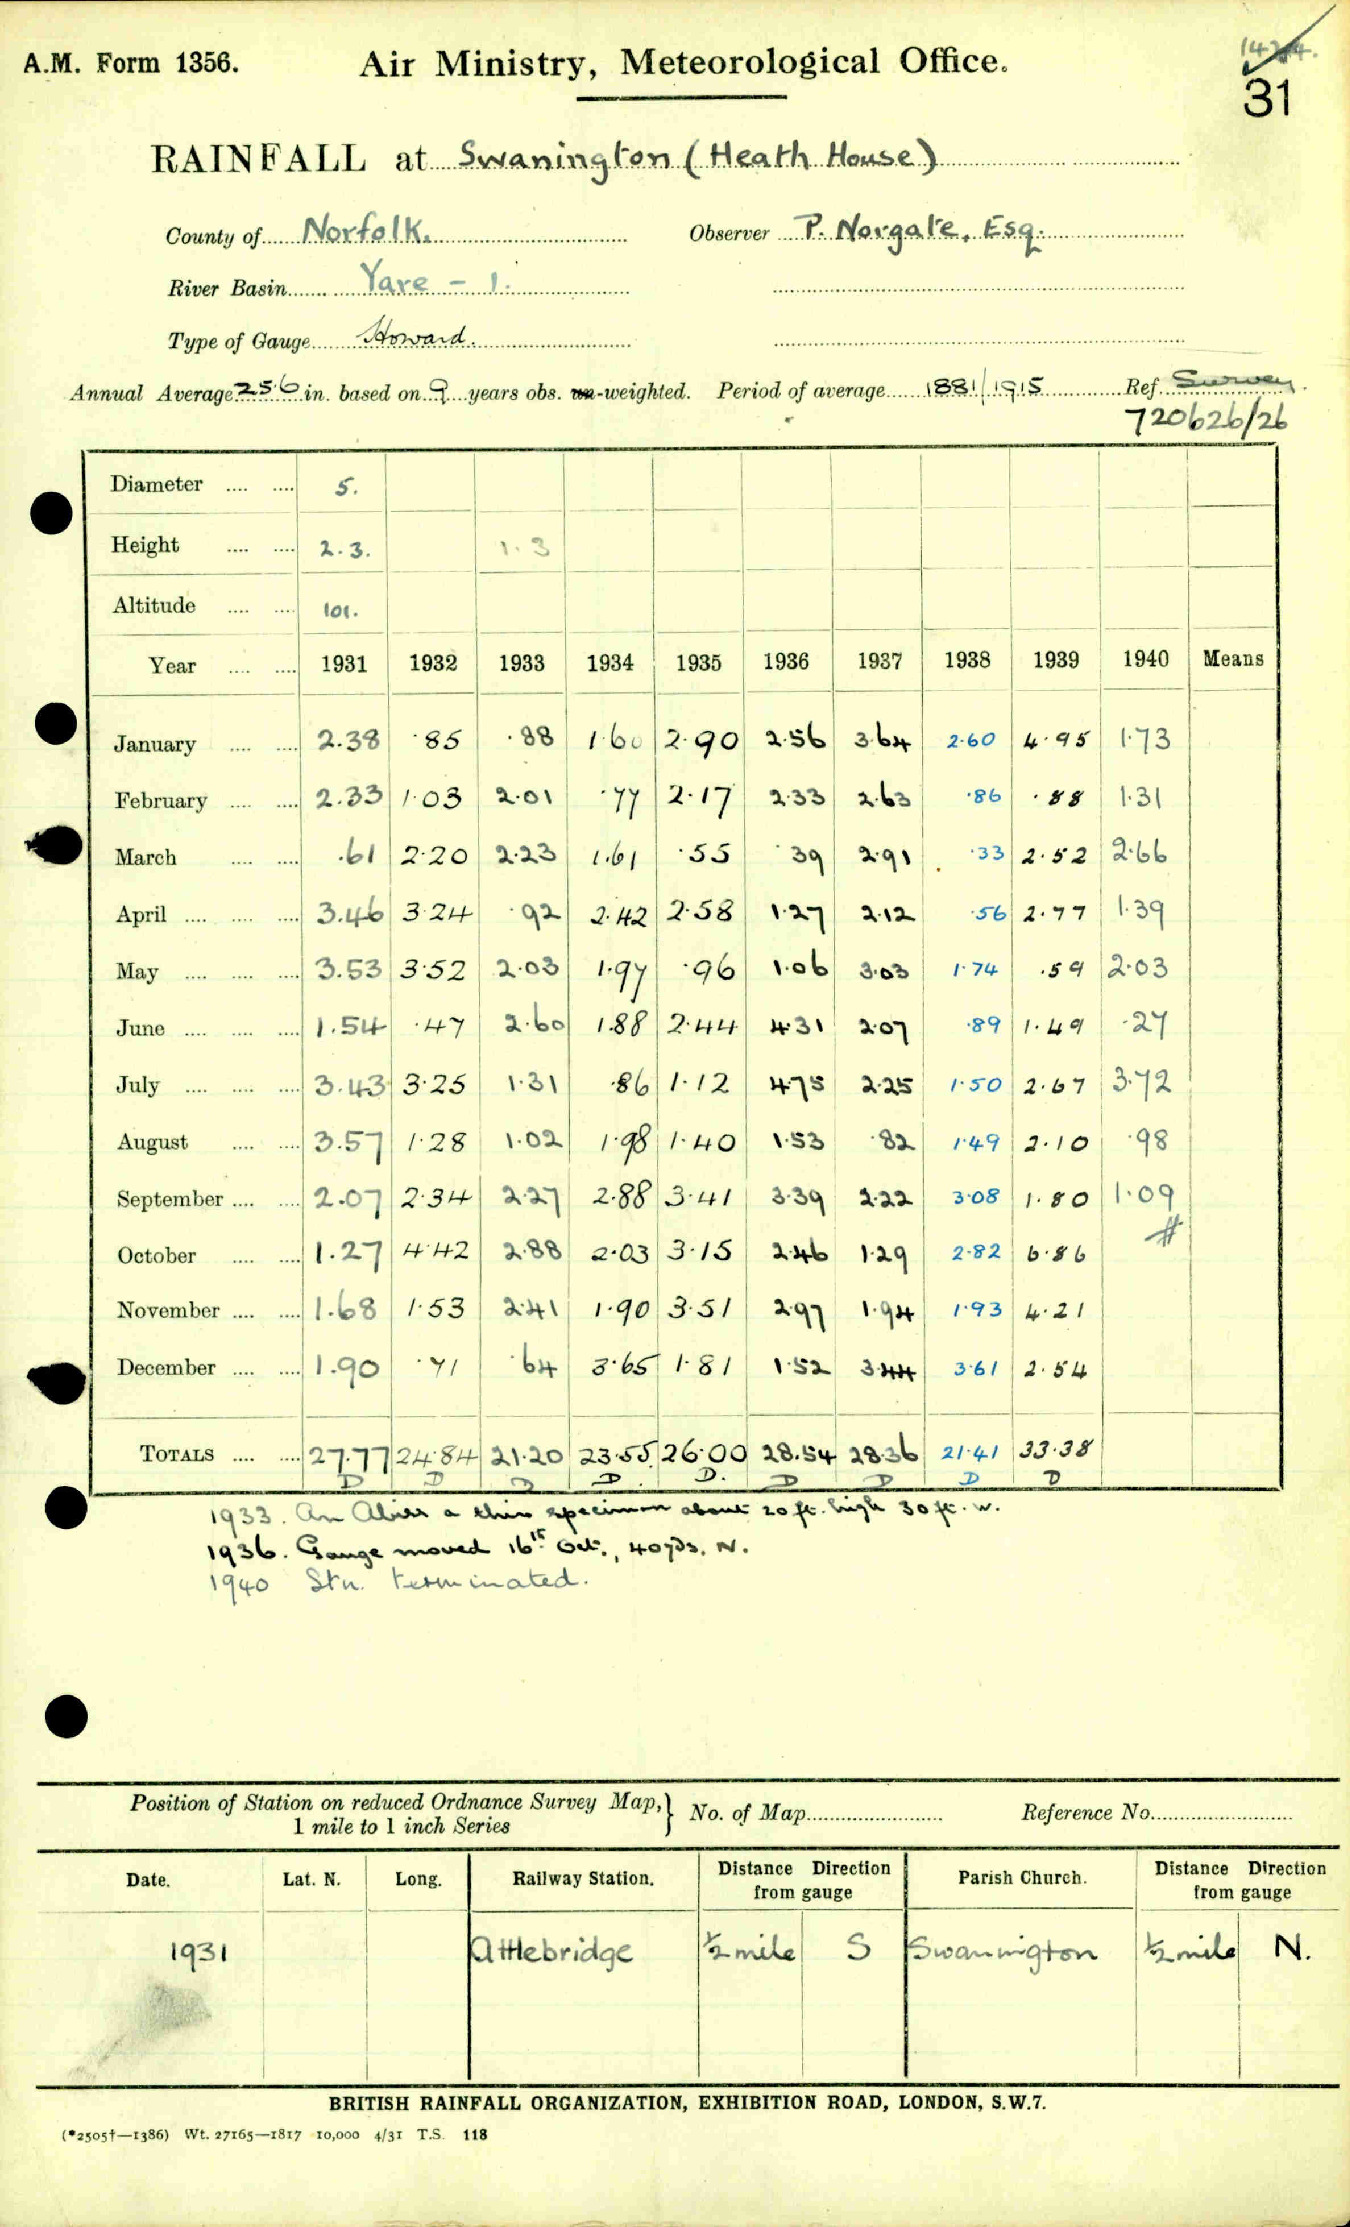 A.M. Form 1356.
Air Ministry, Meteorological Office.
31
RAINFALL at Swanington (Heath House)
County of Norfolk. Observer P. Norgate, Esq.
River Basin Yare - 1.
Type of Gauge Howard.
Annual Average 25.6 in. based on 9 years obs. un-weighted. Period of average 1881/1915 Ref. Survey
720626/26
Diameter 5.
Height 2.3. 1.3
Altitude 101.
Year 1931 1932 1933 1934 1935 1936 1937 1938 1939 1940 Means
January 2.38 .85 .88 1.60 2.90 2.56 3.64 2.60 4.95 1.73
February 2.33 1.03 2.01 .77 2.17 2.33 2.63 .86 .88 1.31
March .61 2.20 2.23 1.61 .55 .39 2.91 .33 2.52 2.66
April 3.46 3.24 .92 2.42 2.58 1.27 2.12 .56 2.77 1.39
May 3.53 3.52 2.03 1.97 .96 1.06 3.03 1.74 .59 2.03
June 1.54 .47 2.60 1.88 2.44 4.31 2.07 .89 1.49 .27
July 3.43 3.25 1.31 .86 1.12 4.75 2.25 1.50 2.67 3.72
August 3.57 1.28 1.02 1.98 1.40 1.53 .82 1.49 2.10 .98
September 2.07 2.34 2.27 2.88 3.41 3.39 2.22 3.08 1.80 1.09
October 1.27 4.42 2.88 2.03 3.15 2.46 1.29 2.82 6.86 #
November 1.68 1.53 2.41 1.90 3.51 2.97 1.94 1.93 4.21
December 1.90 .71 .64 3.65 1.81 1.52 3.44 3.61 2.54
TOTALS 27.77 24.84 21.20 23.55 26.00 28.54 28.36 21.41 33.38
D D D D D. D D D D
1933. An a specimen about 20 ft. high 30 ft. W.
1936. Gauge moved 16th Oct., 40yds. N.
1940 Stn. terminated.
Position of Station on reduced Ordnance Survey Map, } No. of Map Reference No.
1 mile to 1 inch Series
Date. Lat. N. Long. Railway Station. Distance Direction from gauge Parish Church. Distance Direction from gauge
1931 Attlebridge ½ mile S Swannington ½ mile N.
BRITISH RAINFALL ORGANIZATION, EXHIBITION ROAD, LONDON, S.W.7.
(*2505†—1386) Wt. 27165—1817 10,000 4/31 T.S. 118